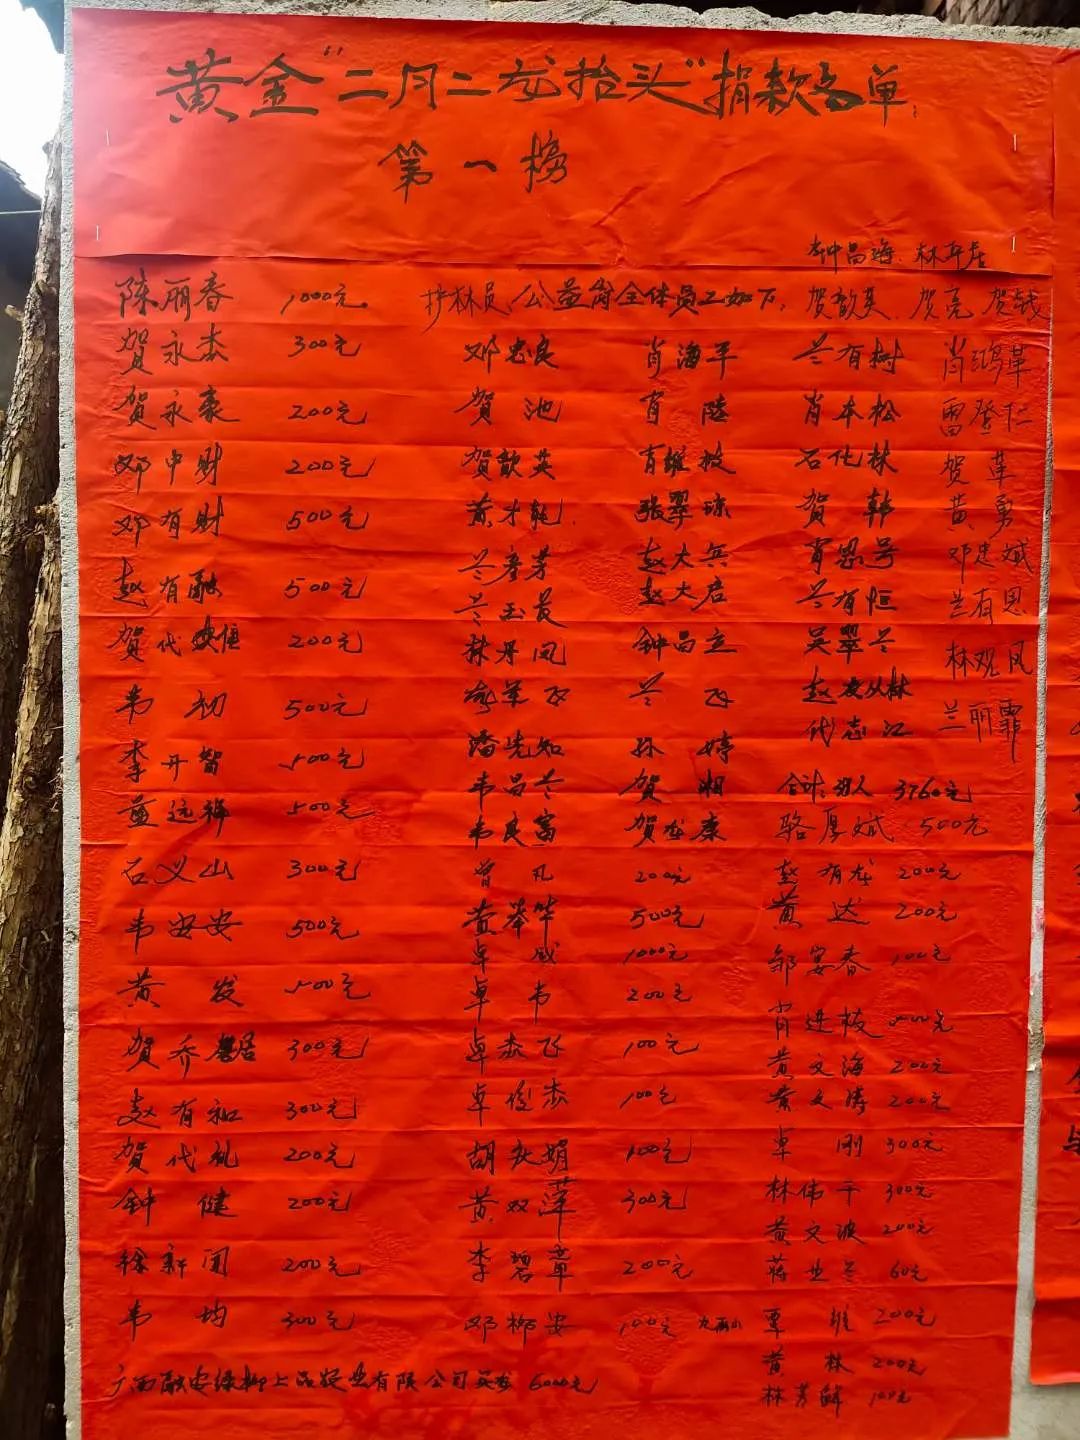 黄金“二月二龙抬头”捐款名单：
第一榜
钟昌海 林
护林员、公益岗全体员工如下： 贺歆英 贺亮 贺战
陈丽春 1000元
贺永杰 300元
贺永豪 200元
邓中财 200元
邓有财 500元
赵有融 500元
贺代 200元
韦初 500元
李开智 500元
500元
石义山 300元
韦安安 500元
黄发 500元
贺乔居 300元
赵有和 300元
贺代礼 200元
钟健 200元
徐新闻 200元
韦均 300元
广西融安绿柳上品 业有限公司 6000元
邓忠良
贺池
贺歆英
黄才
兰彦芳
兰玉良
林丹凤
潘先知
韦昌兰
韦良富
曾凡 200元
黄举华 500元
卓威 1000元
卓韦 200元
卓杰飞 100元
卓俊杰 100元
胡庆娟 100元
黄双萍 300元
李碧章 200元
邓柳安 100元
肖海平
肖陆
肖维枝
张翠琼
赵大兵
赵大君
钟昌立
兰飞
孙婷
贺湘
贺龙康
兰有树
肖本松
石化林
贺韩
肖思号
兰有恒
吴翠兰
赵发林
代志江
肖鸿革
雷登仁
贺革
黄勇
邓忠斌
兰有思
林观凤
兰丽霏
合计: 人 3760元
骆厚斌 500元
赵有龙 200元
黄达 200元
邹宴春 100元
肖进枝
黄文海 200元
黄文涛 200元
卓刚 300元
林伟干 300元
黄文波 200元
蒋业兰 60元
覃维 200元
黄林 200元
林芳鲜 100元